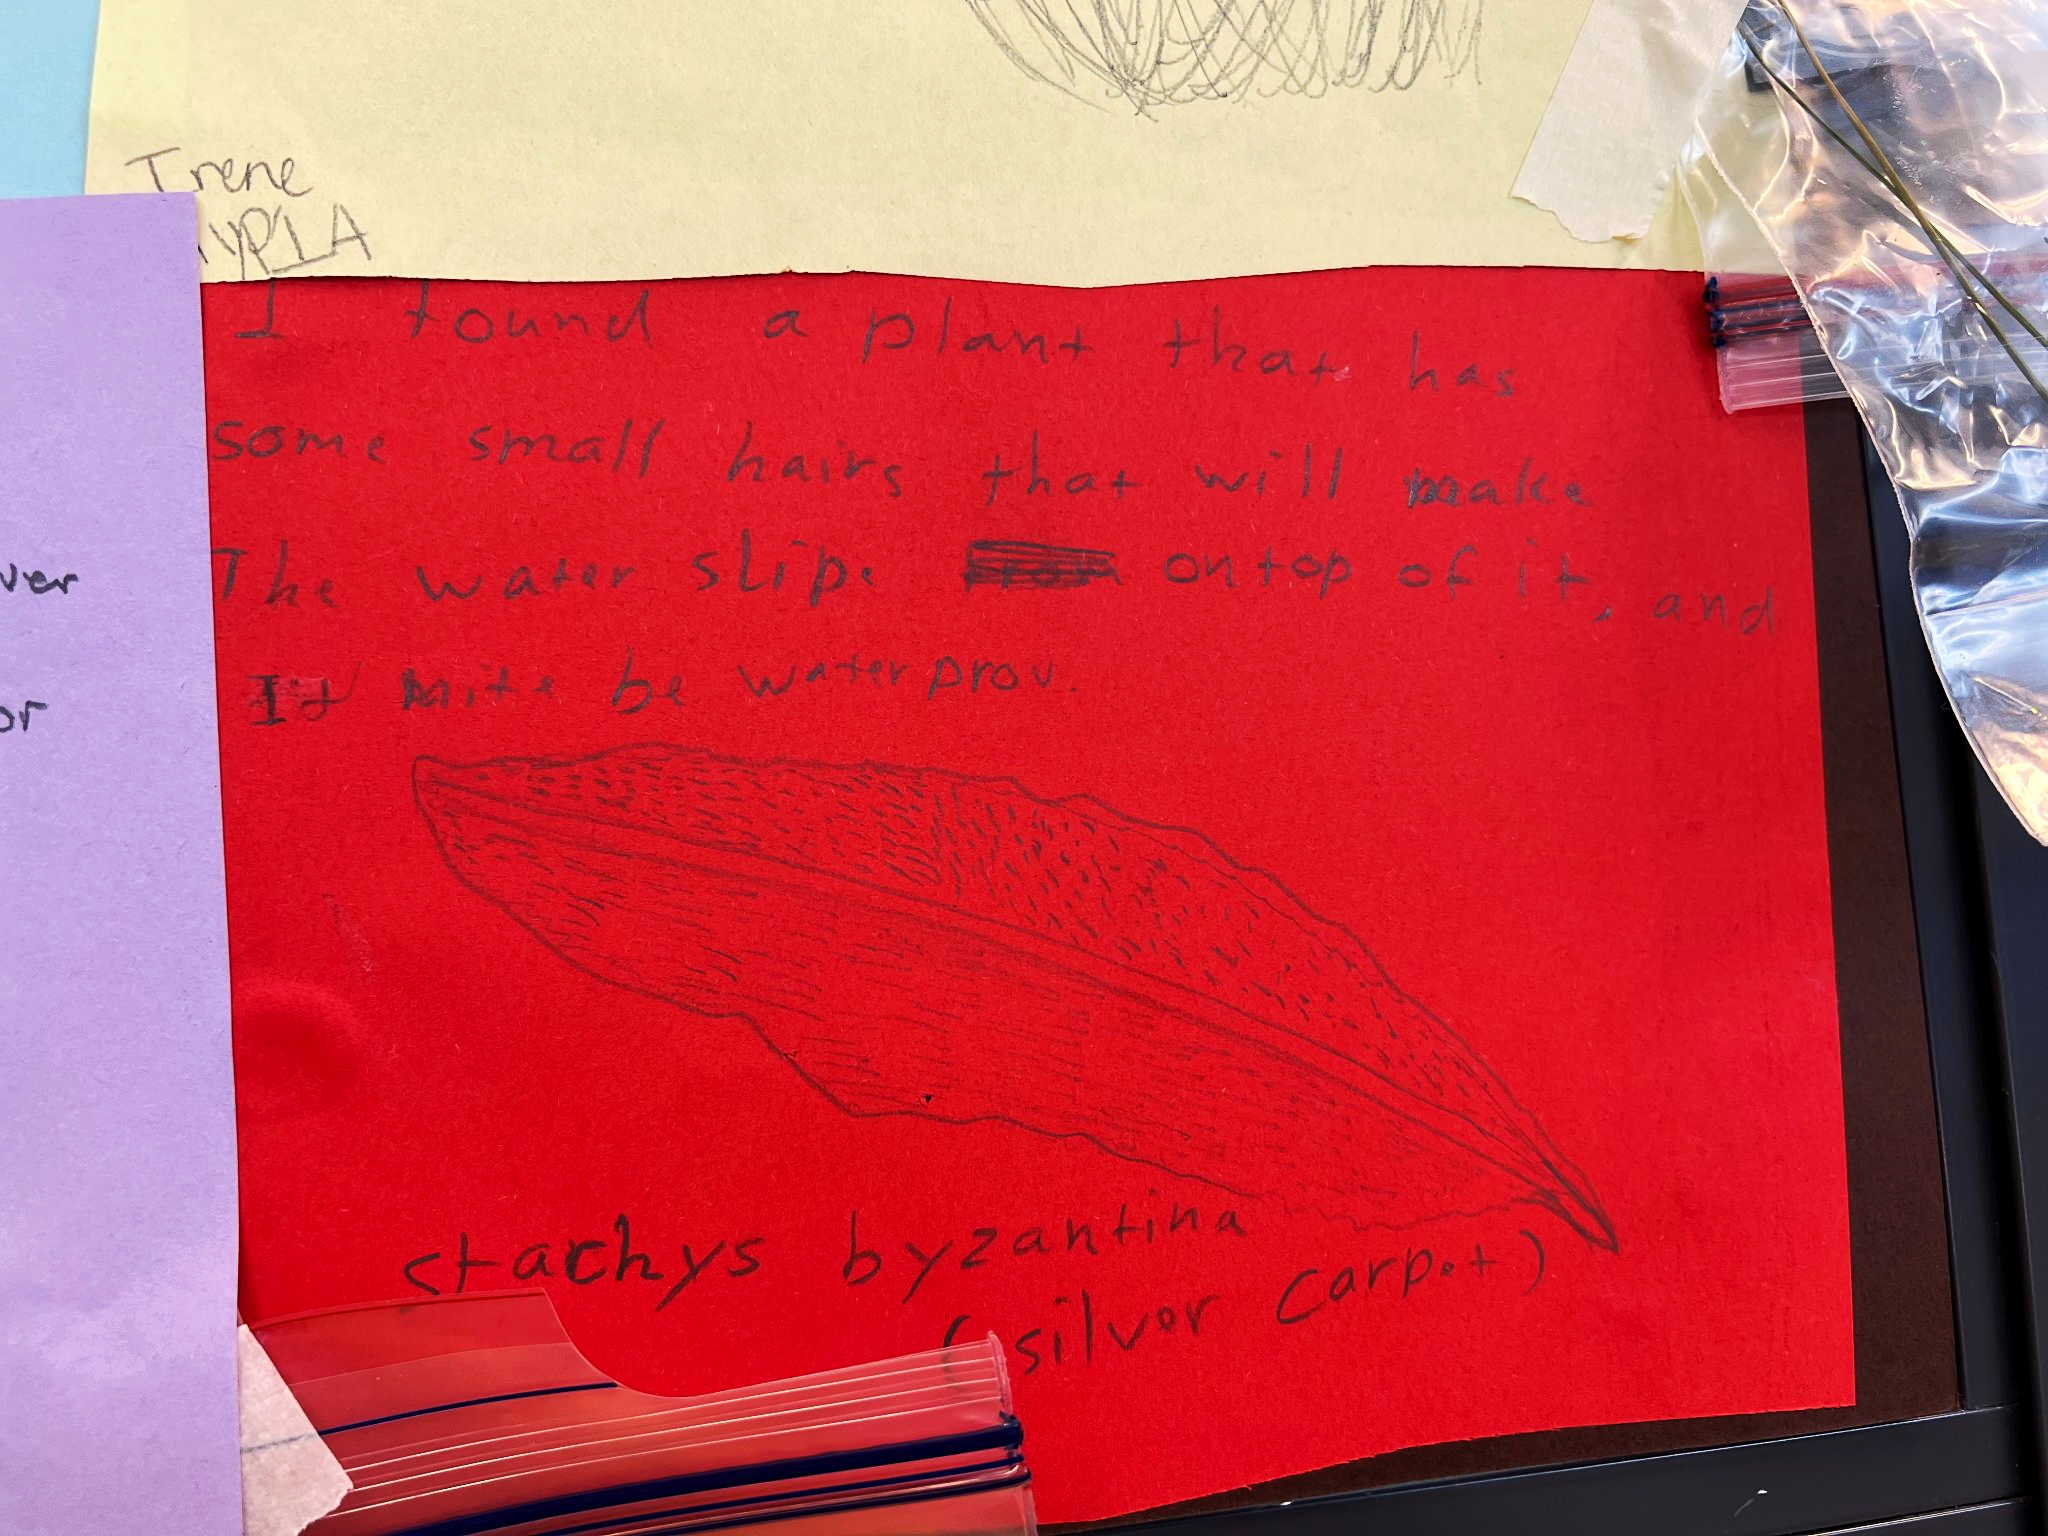 Irene
MYP1A
I found a plant that has
some small hairs that will make
The water slipe ontop of it, and
It mite be waterprov.
stachys byzantina
(silvor carpet)
ver
or